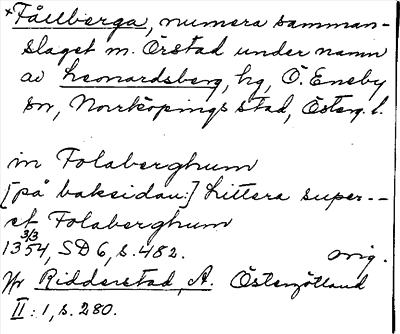 ×Fållberga, numera samman-
slaget m. Örstad under namn
av Leonardsberg, hg, Ö. Eneby
sn, Norrköpings stad, Österg. l.
in Folaberghum
[på baksidan:] Littera super --
et Folaberghum
13 3/3 54, SD 6, s. 482. orig.
Jfr Ridderstad, A. Östergötland
II: 1, s. 280.